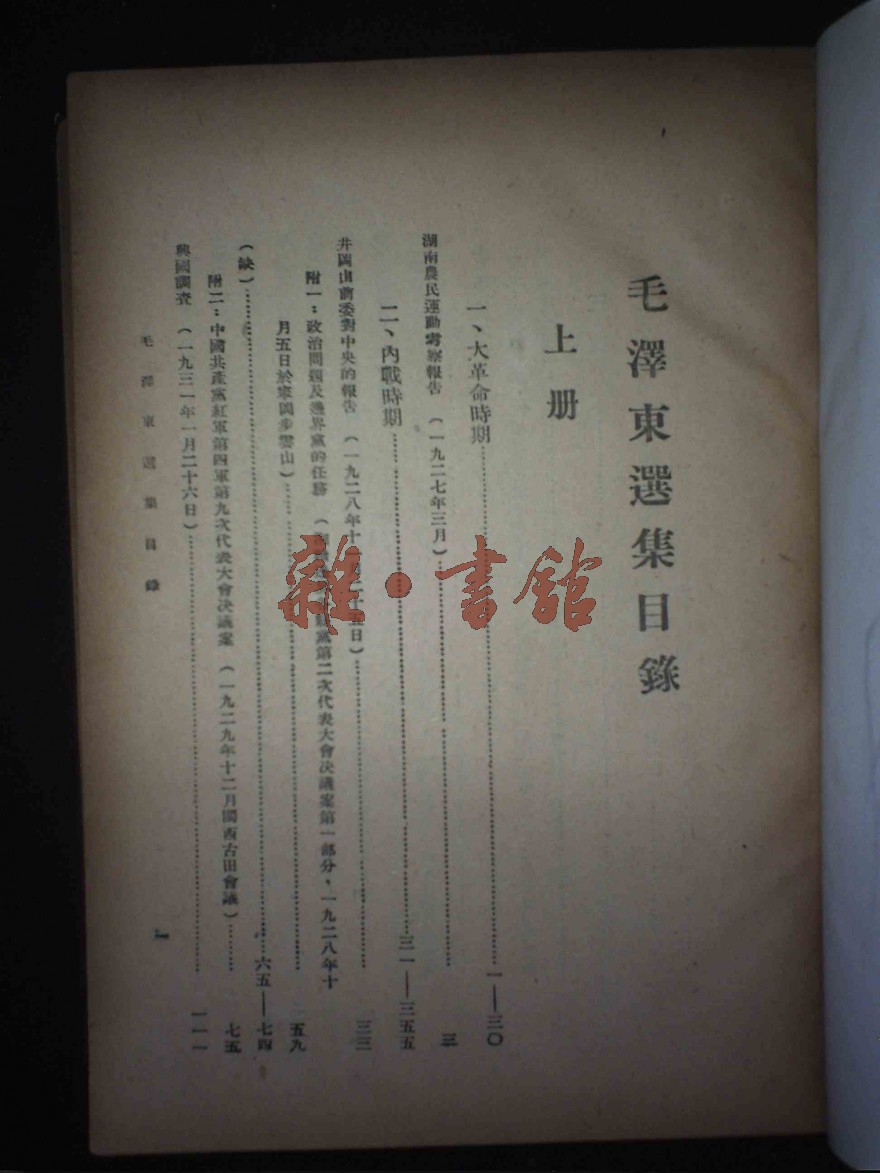 毛澤東選集目錄
上册
一、大革命時期……一——三〇
湖南農民運動考察報告（一九二七年三月）……三
二、內戰時期……三一——三五五
井岡山前委對中央的報告（一九二八年十一月二十五日）……三三
附一：政治問題及邊界黨的任務（黨第二次代表大會決議案第一部分，一九二八年十
月五日於寧岡步雲山）……五九
（缺）……六五——七四
附二：中國共產黨紅軍第四軍第九次代表大會決議案（一九二九年十二月閩西古田會議）……七五
興國調查（一九三一年一月二十六日）……一一一
毛澤東選集目錄
1
雜·書館